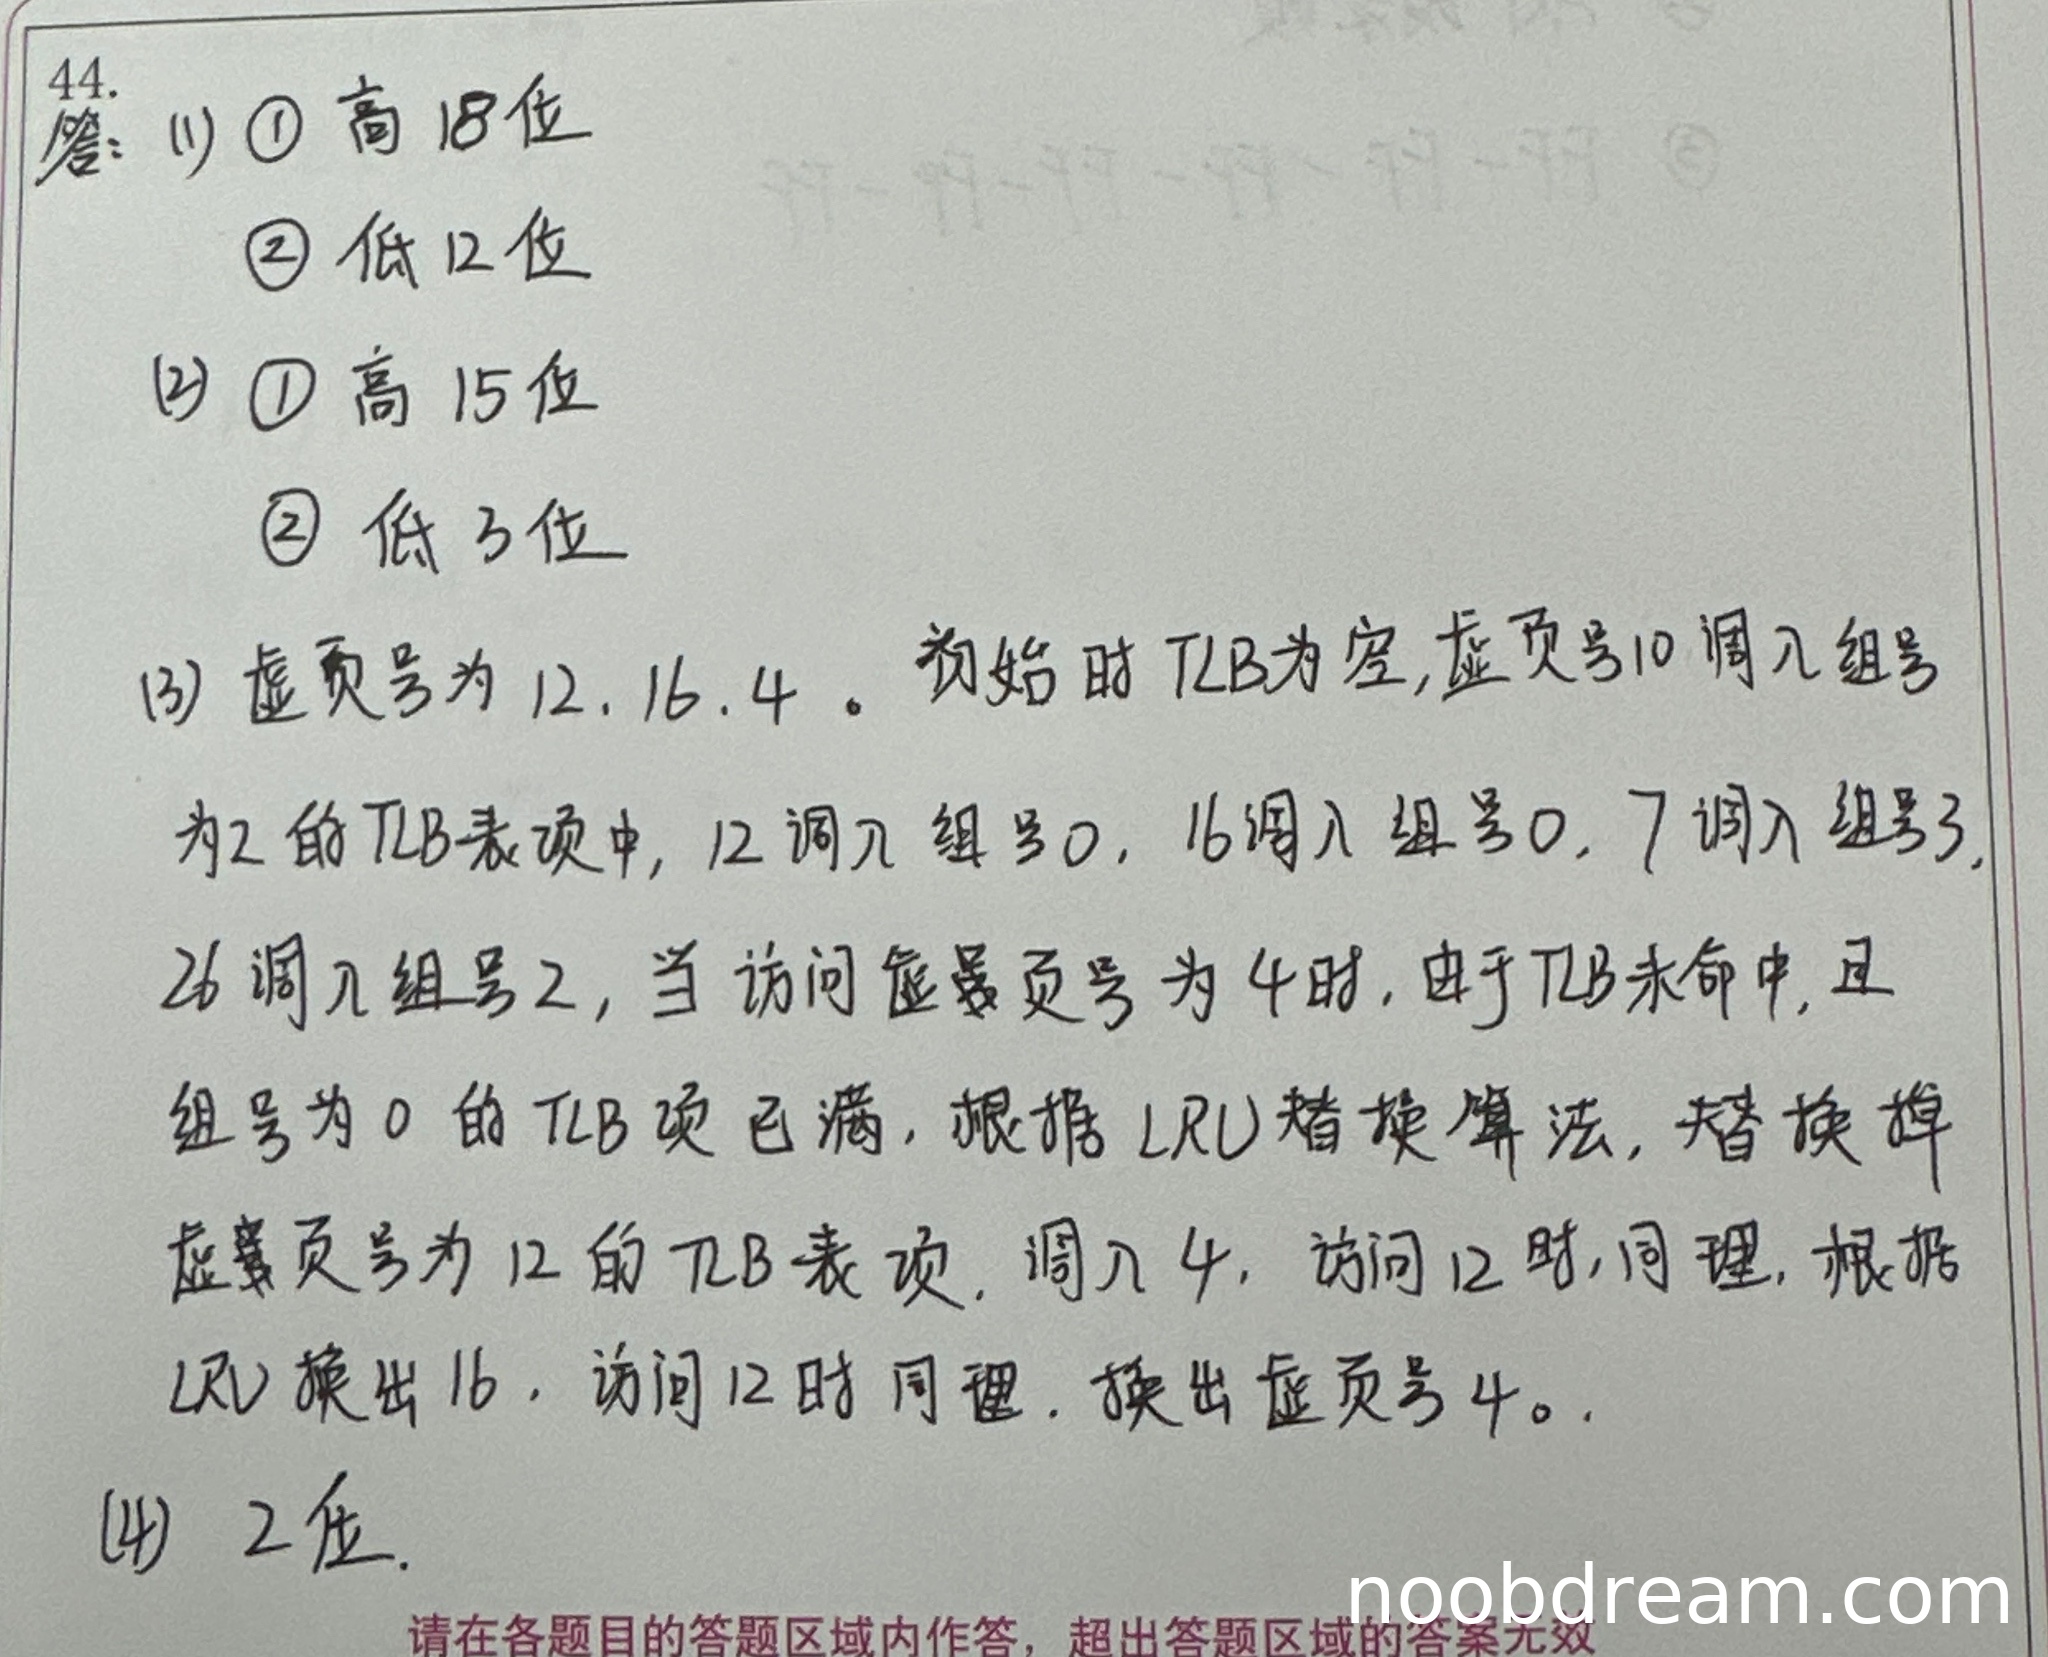 44.
答: (1) ① 高 18 位
② 低 12 位
(2) ① 高 15 位
② 低 3 位
(3) 虚页号为 12. 16. 4 。 初始时 TLB为空,虚页号10 调入组号
为2 的TLB表项中, 12 调入 组号0, 16调入 组号0, 7 调入 组号3,
26 调入组号2, 当访问虚页号为 4时, 由于TLB未命中, 且
组号为 0 的 TLB 项已满, 根据 LRU替换算法, 替换掉
虚页号为 12 的 TLB 表项, 调入 4, 访问 12 时, 同理, 根据
LRU 换出 16, 访问 12 时 同理, 换出 虚页号 4。.
(4) 2 位.
请在各题目的答题区域内作答，超出答题区域的答案无效
noobdream.com